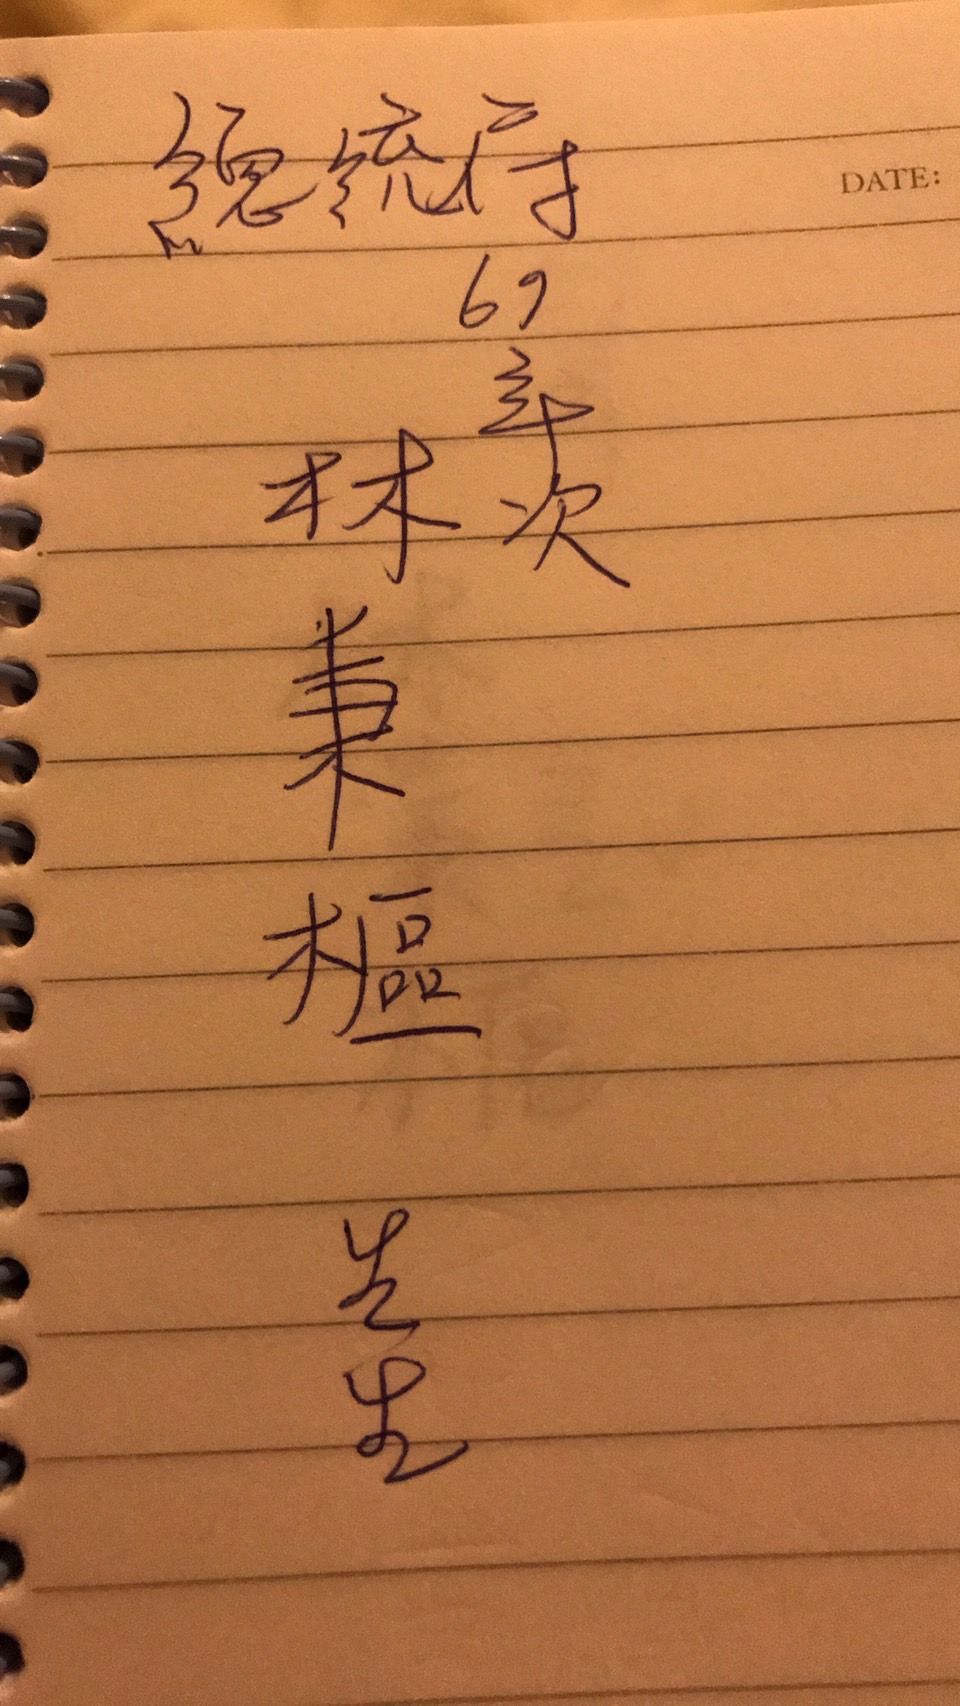 總統府
DATE:
69
年次
林
秉
樞
先
生